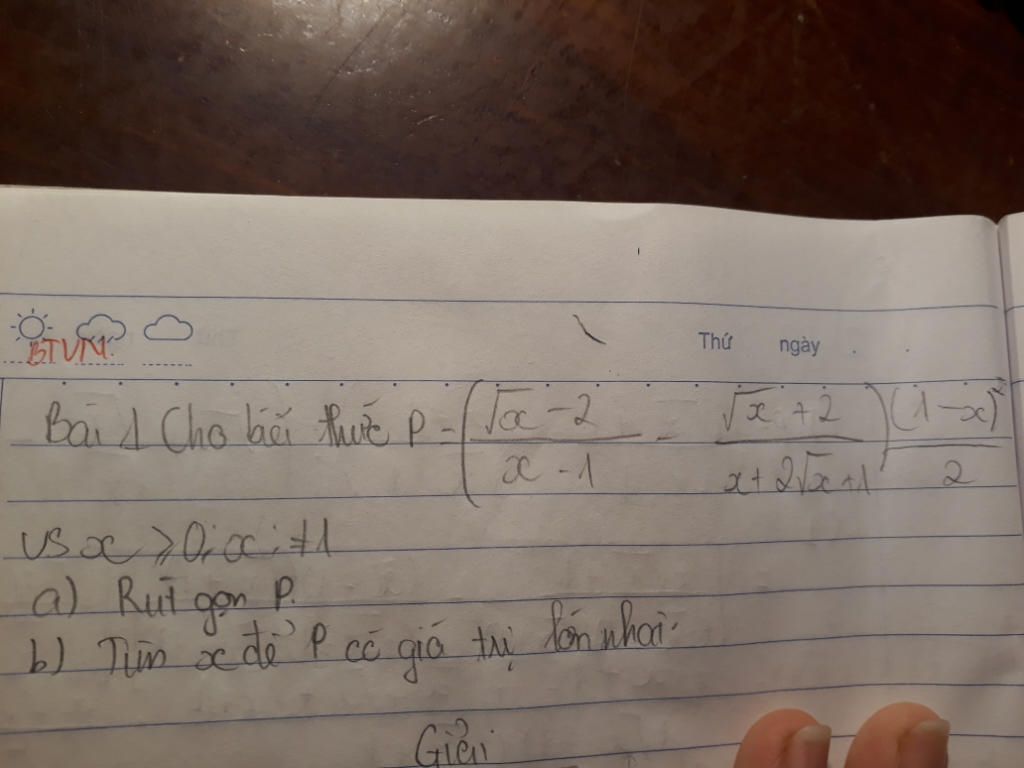 Thứ ngày
BTVN
Bài 1 Cho biểi thức P = ( (√x - 2)/(x - 1) - (√x + 2)/(x + 2√x + 1) ) (1-x)²/2
vs x ⩾ 0; x ; ≠ 1
a) Rút gọn P.
b) Tìm x để P có giá trị lớn nhất.
Giải